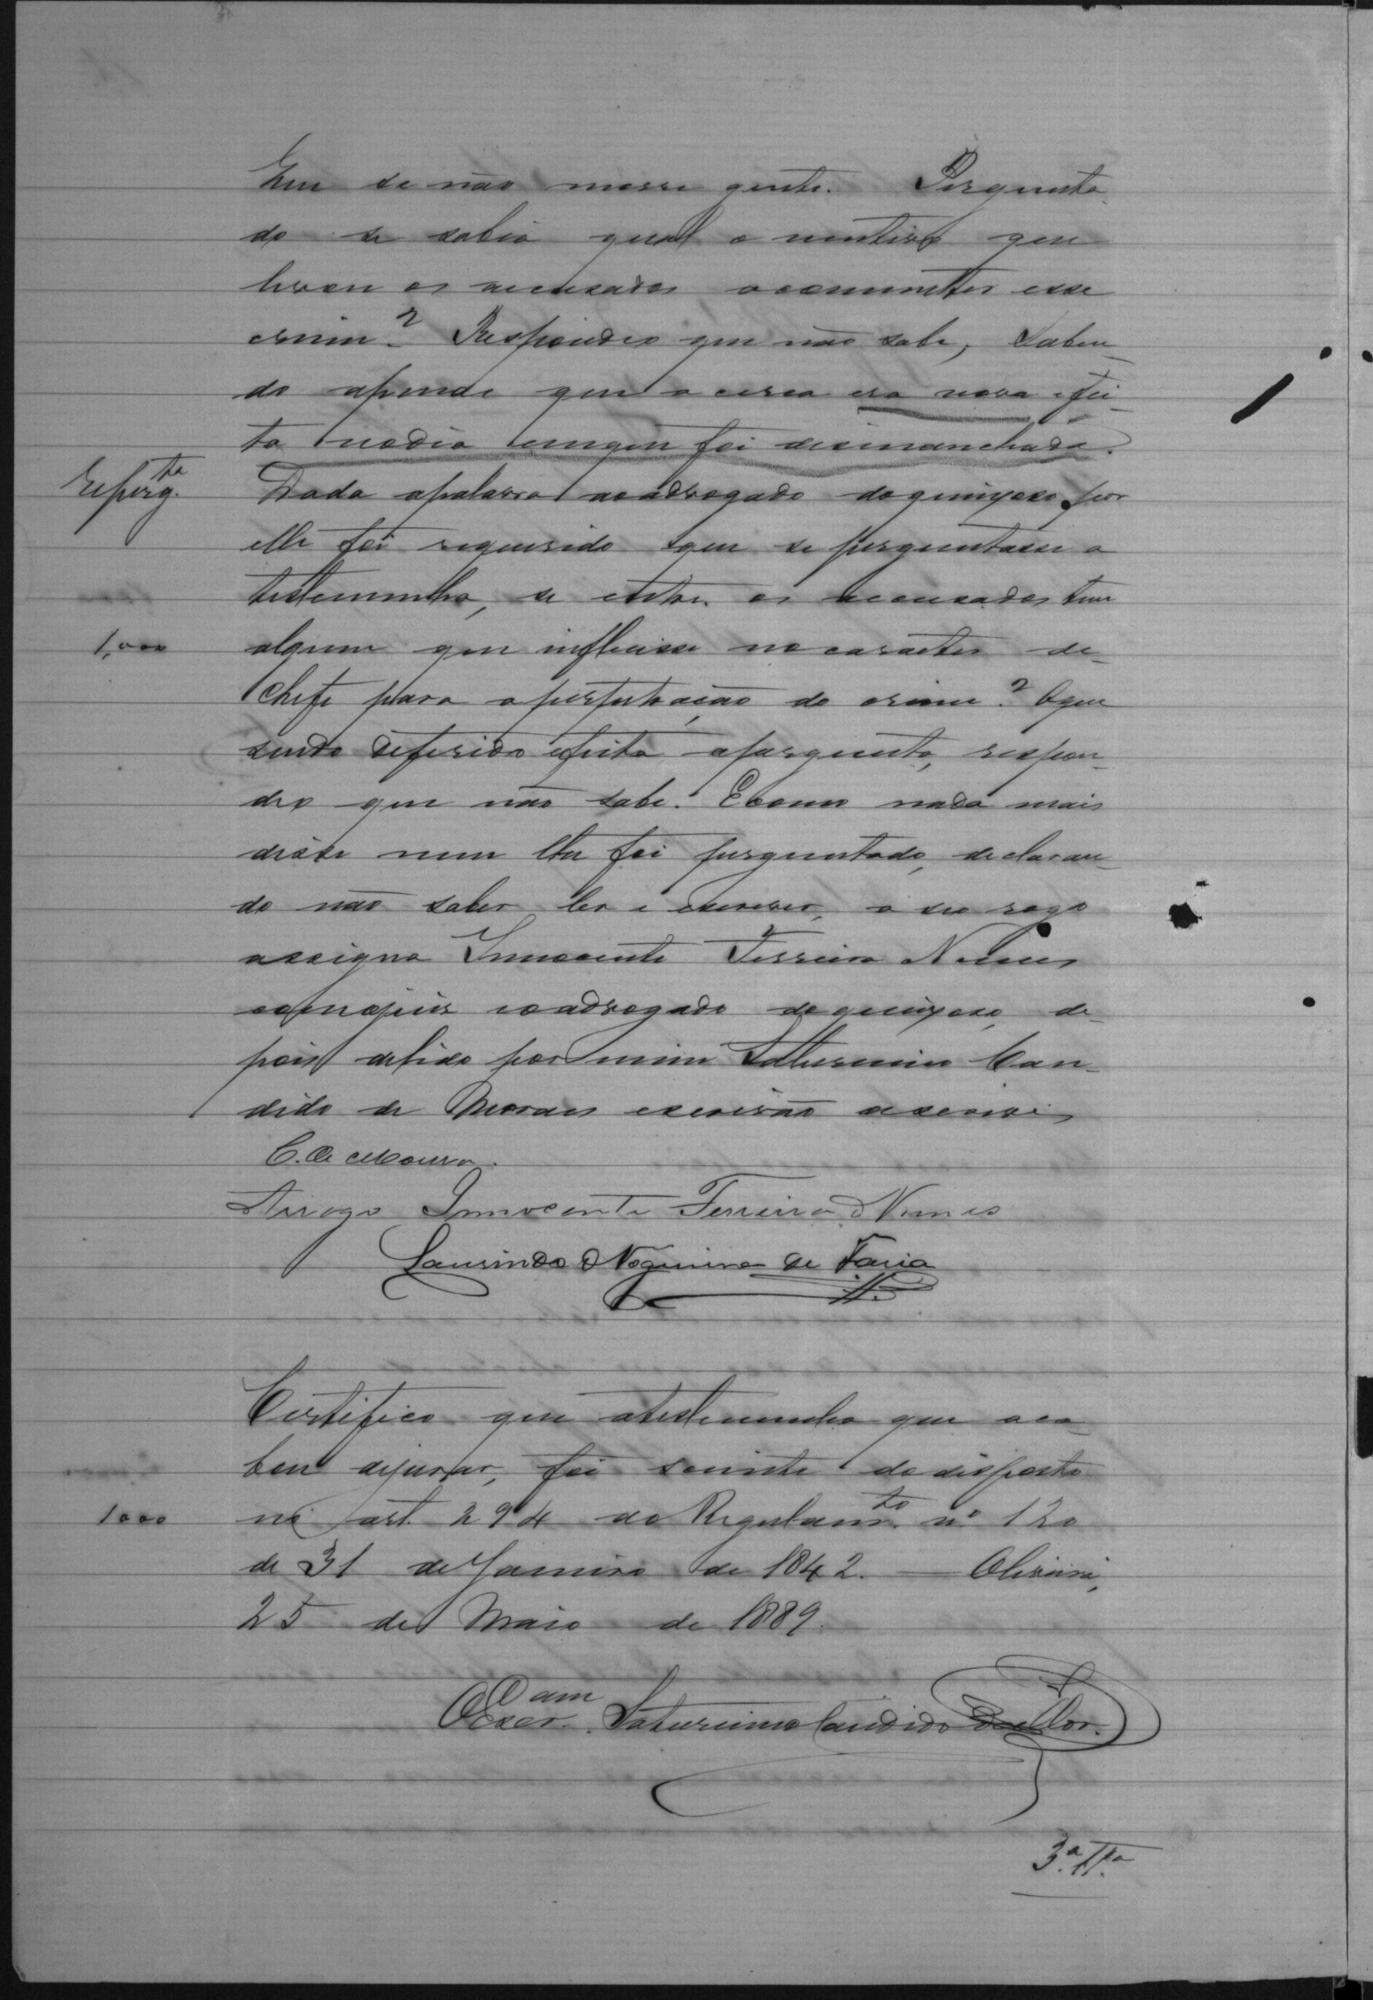 se não gente. Pergunta
do se sabia qual o motivo que
os accusados a commetter esse
crime? Respondeo que não sabe, saben
do apenas que a cerca era nova e fei-
ta no dia em que foi desmanchada.
Reperg.ta Dada a palavra ao advogado do queixoso por
elle foi requerido que se perguntasse a
testemunha, se entre os accusados teve
1,000 algum que influisse no caracter de
Chefe para a perpetração do crime? O que
sendo deferido e feita a pergunta, respon-
deo que não sabe. E como nada mais
disse nem lhe foi perguntado, declaran-
do não saber ler e escrever, a seu rogo
assigna Innocente Ferreira Nunes
com o juiz e o advogado do queixoso, de-
pois de lido por mim Saturnino Can-
dido de Moraes escrivão o escrevi
C. de Moura.
A rogo Innocente Ferreira Nunes
Laurindo Nogueira de Faria
Certifico que a testemunha que aca-
bou de jurar, foi sciente do disposto
1000 no art. 294 do Regulam.to nº 120
de 31 de Janeiro de 1842. —
25 de Maio de 1889.
O Escr.am Saturnino Candido de Mor.
3.ª T.ª